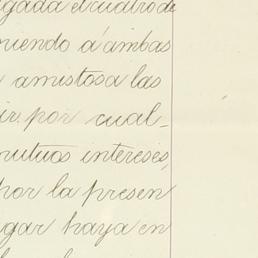 gada el cuatro de
niendo a ambas
amistosa las
ir, por cual-
mutuos intereses,
por la presen
gar haya en